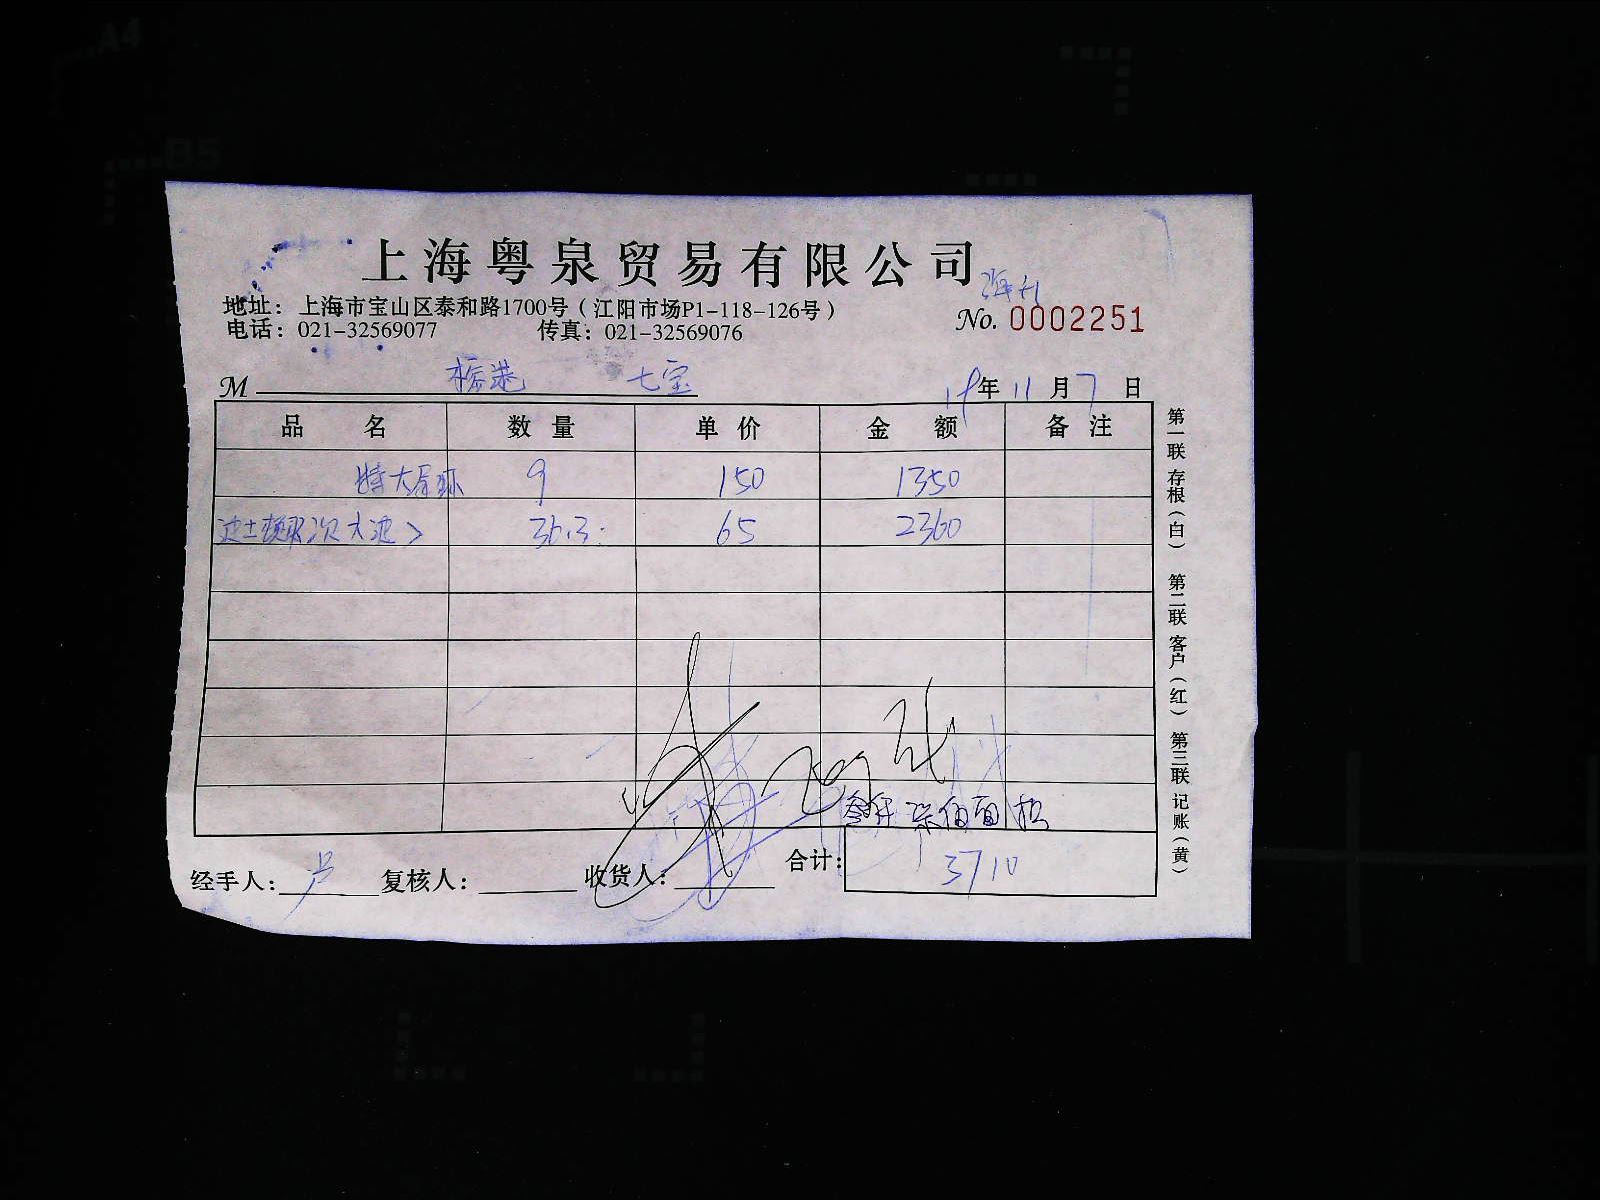 上海粤泉贸易有限公司
地址：上海市宝山区泰和路1700号（江阳市场P1-118-126号）
电话：021-32569077 传真：021-32569076
No. 0002251
M 七宝
年 11 月 7 日
品名 数量 单价 金额 备注
特大 9 150 1350
波士顿 36.3 65 2360
合计： 3710
经手人： 卢 复核人： 收货人：
第一联 存根（白） 第二联 客户（红） 第三联 记账（黄）
A4
B5